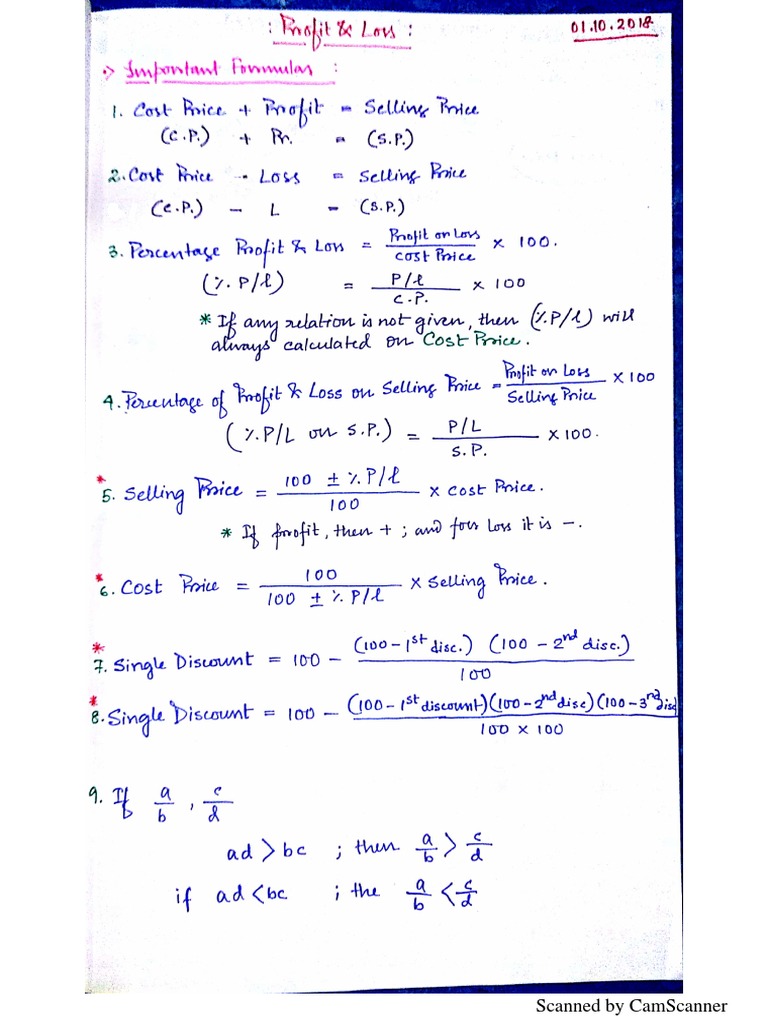 : Profit & Loss :
01.10.2018
Important Formulas :
1. Cost Price + Profit = Selling Price
(C.P.) + Pr. = (S.P.)
2. Cost Price - Loss = Selling Price
(C.P.) - L = (S.P.)
3. Percentage Profit & Loss = Profit or Loss / Cost Price × 100.
(%. P/l) = P/l / C.P. × 100
* If any relation is not given, then (%P/l) will
always calculated on Cost Price.
4. Percentage of Profit & Loss on Selling Price = Profit or Loss / Selling Price × 100
(%P/L on S.P.) = P/L / S.P. × 100.
* 5. Selling Price = 100 ± %P/l / 100 × Cost Price.
* If profit, then + ; and for loss it is -.
* 6. Cost Price = 100 / 100 ± %P/l × Selling Price.
* 7. Single Discount = 100 - (100 - 1st disc.) (100 - 2nd disc.) / 100
* 8. Single Discount = 100 - (100 - 1st discount)(100 - 2nd disc)(100 - 3rd disc / 100 × 100
9. If a/b , c/d
ad > bc ; then a/b > c/d
if ad < bc ; the a/b < c/d
Scanned by CamScanner